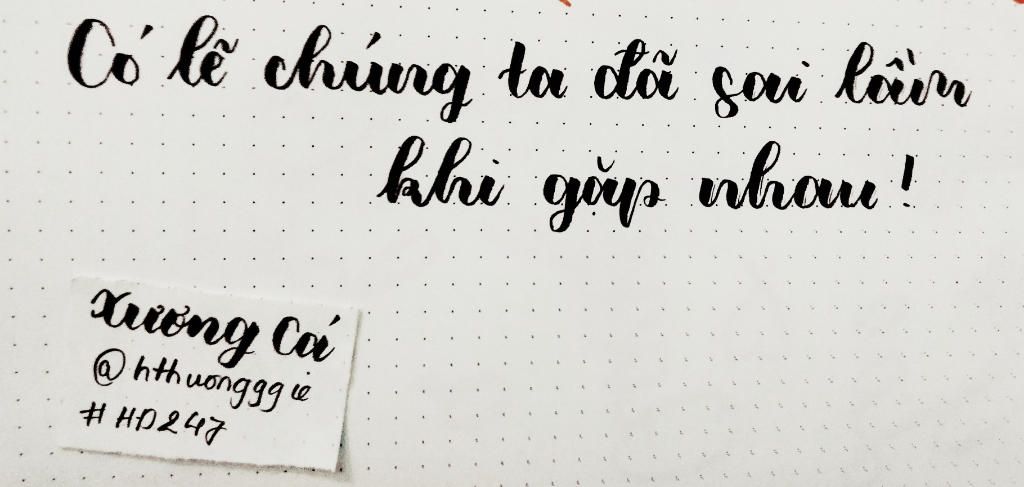 Có lẽ chúng ta đã sai lầm
khi gặp nhau!
Xương Cá
@hthuongggie
#HD247